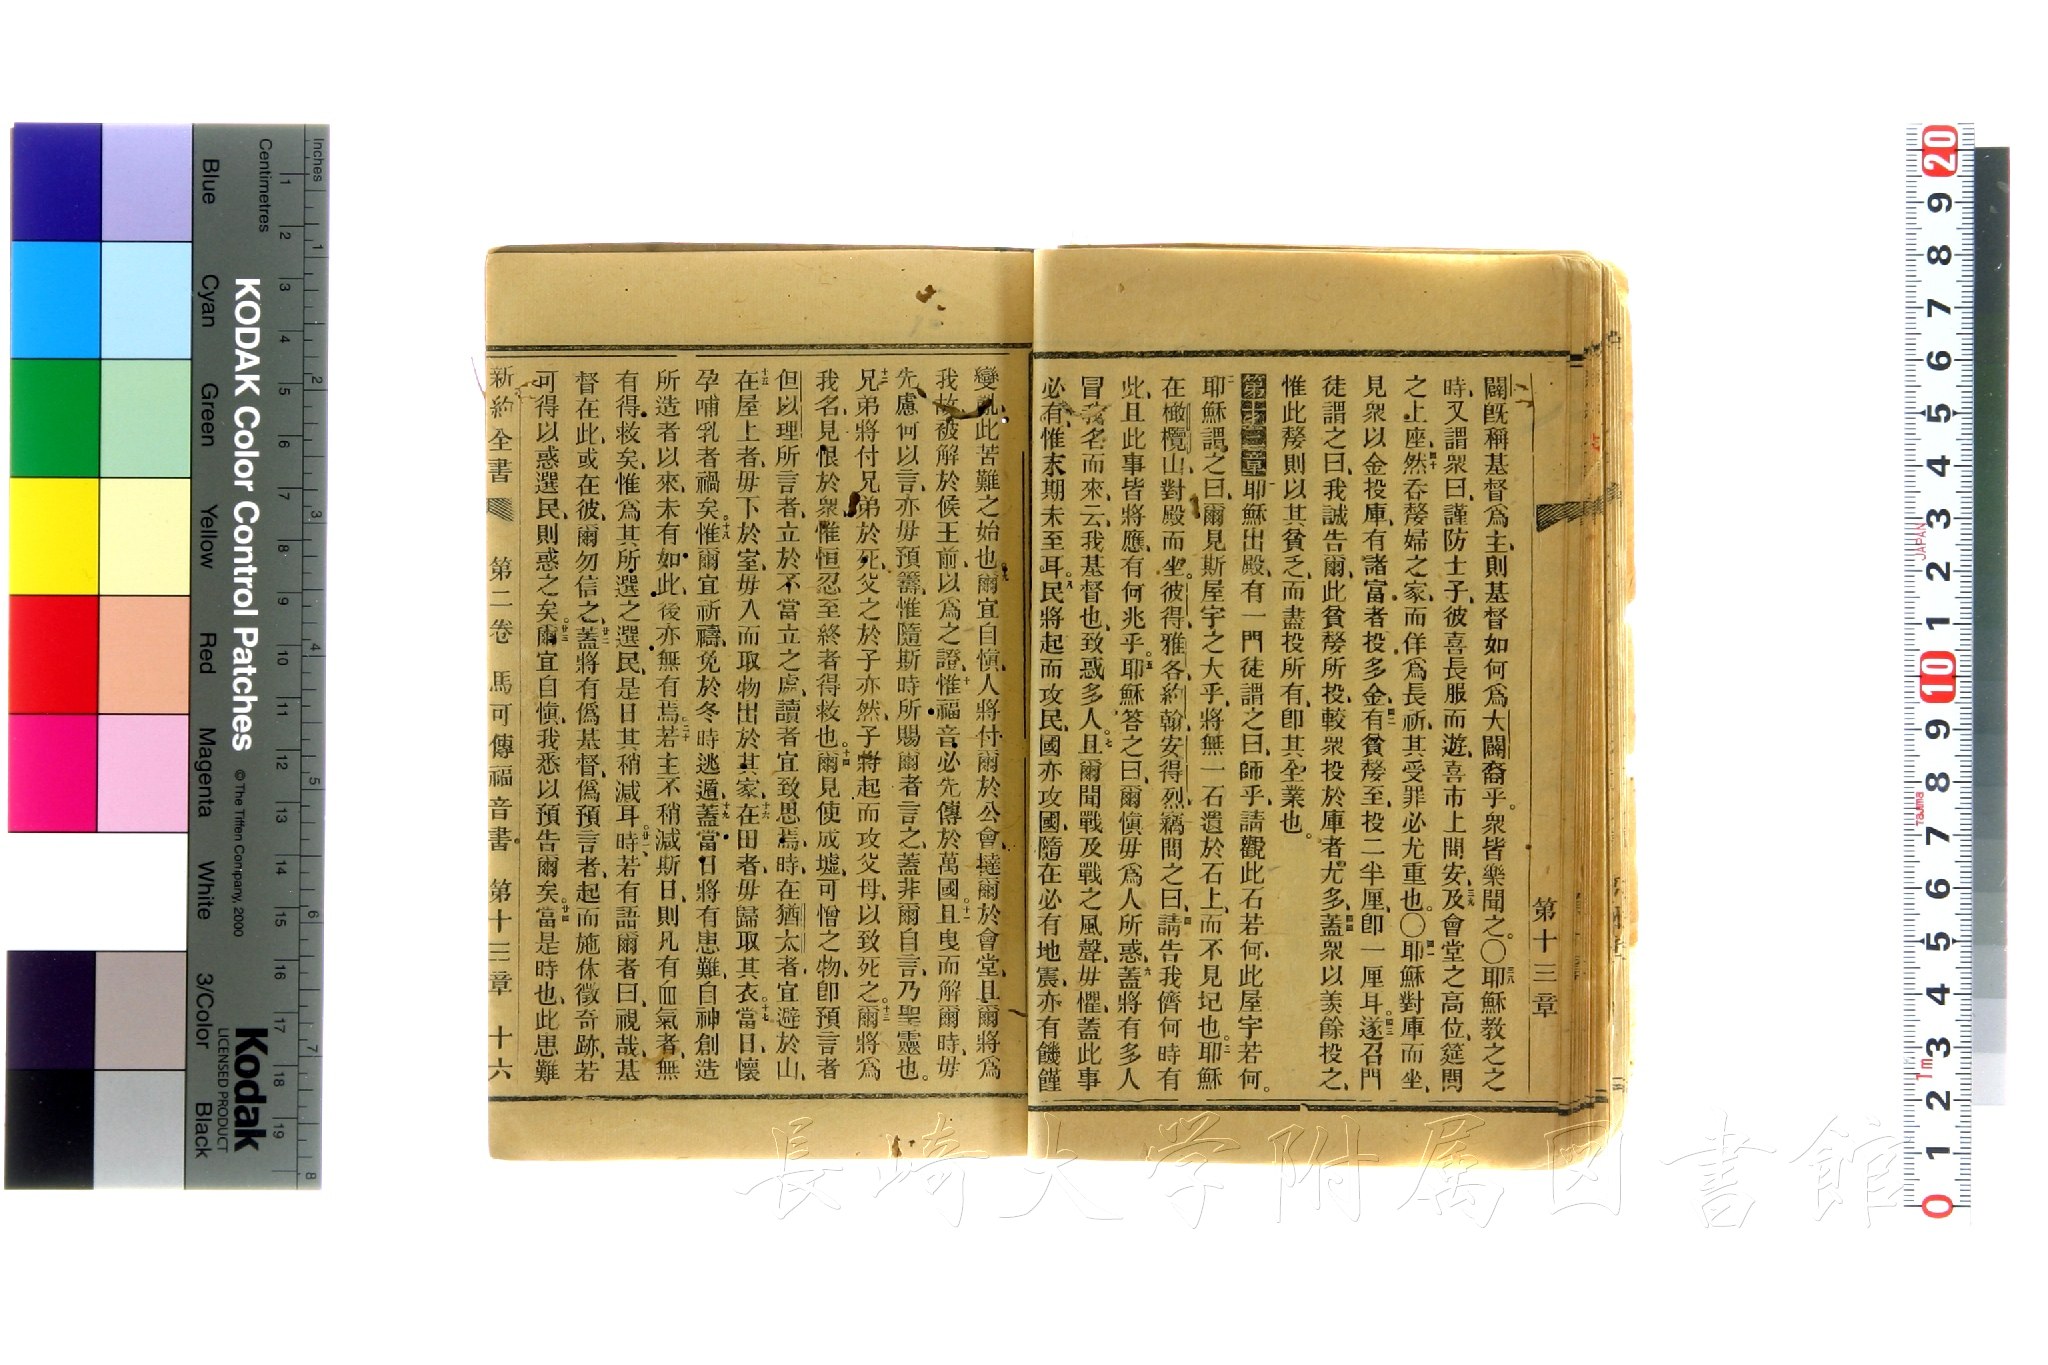 第十三章
闢旣稱基督爲主、則基督如何爲大闢裔乎。衆皆樂聞之。〇三八耶穌敎之之
時、又謂衆曰、謹防士子、彼喜長服而遊、喜市上問安、三九及會堂之高位、筵間
之上座、四十然呑嫠婦之家、而佯爲長祈、其受罪必尤重也。〇四一耶穌對庫而坐、
見衆以金投庫、有諸富者投多金、四二有貧嫠至、投二半厘、卽一厘耳。四三遂召門
徒謂之曰、我誠告爾、此貧嫠所投、較衆投於庫者尤多、四四蓋衆以羨餘投之、
惟此嫠則以其貧乏、而盡投所有、卽其全業也。
第十三章 一耶穌出殿、有一門徒謂之曰、師乎、請觀此石若何、此屋宇若何。
二耶穌謂之曰、爾見斯屋宇之大乎、將無一石遺於石上、而不見圮也。三耶穌
在橄欖山對殿而坐。彼得、雅各、約翰、安得烈竊問之曰、四請告我儕、何時有
此、且此事皆將應、有何兆乎。五耶穌答之曰、爾愼毋爲人所惑、六蓋將有多人
冒我名而來、云、我基督也、致惑多人。七且爾聞戰及戰之風聲、毋懼、蓋此事
必有、惟末期未至耳。八民將起而攻民、國亦攻國、隨在必有地震、亦有饑饉
變亂、此苦難之始也。九爾宜自愼、人將付爾於公會、撻爾於會堂、且爾將爲
我故、被解於侯王前、以爲之證、十惟福音必先傳於萬國、十一且曳而解爾時、毋
先慮何以言、亦毋預籌、惟隨斯時所賜爾者言之、蓋非爾自言、乃聖靈也。
十二兄弟將付兄弟於死、父之於子亦然、子將起而攻父母、以致死之、十三爾將爲
我名、見恨於衆、惟恒忍至終者得救也。十四爾見使成墟可憎之物、卽預言者
但以理所言者、立於不當立之處、讀者宜致思焉、時在猶太者、宜避於山、
十五在屋上者、毋下於室、毋入而取物出於其家、十六在田者、毋歸取其衣。十七當日懷
孕哺乳者禍矣。十八惟爾宜祈禱、免於冬時逃遁、十九蓋當日將有患難、自神創造
所造者以來、未有如此、後亦無有焉。二十若主不稍減斯日、則凡有血氣者、無
有得救矣、惟爲其所選之選民、是日其稍減耳。廿一時若有語爾者曰、視哉、基
督在此、或在彼、爾勿信之、廿二蓋將有僞基督、僞預言者、起而施休徵奇跡、若
可得以惑選民、則惑之矣。廿三爾宜自愼、我悉以預告爾矣。廿四當是時也、此患難
新約全書 第二卷 馬可傳福音書 第十三章 十六
長崎大学附属図書館
KODAK Color Control Patches ©The Tiffen Company, 2000
Kodak
LICENSED PRODUCT
Blue Cyan Green Yellow Red Magenta White 3/Color Black
Inches 1 2 3 4 5 6 7 8
Centimetres 1 2 3 4 5 6 7 8 9 10 11 12 13 14 15 16 17 18 19
20 9 8 7 6 5 4 3 2 1 10 9 8 7 6 5 4 3 2 1 0
JAPAN
Tajima